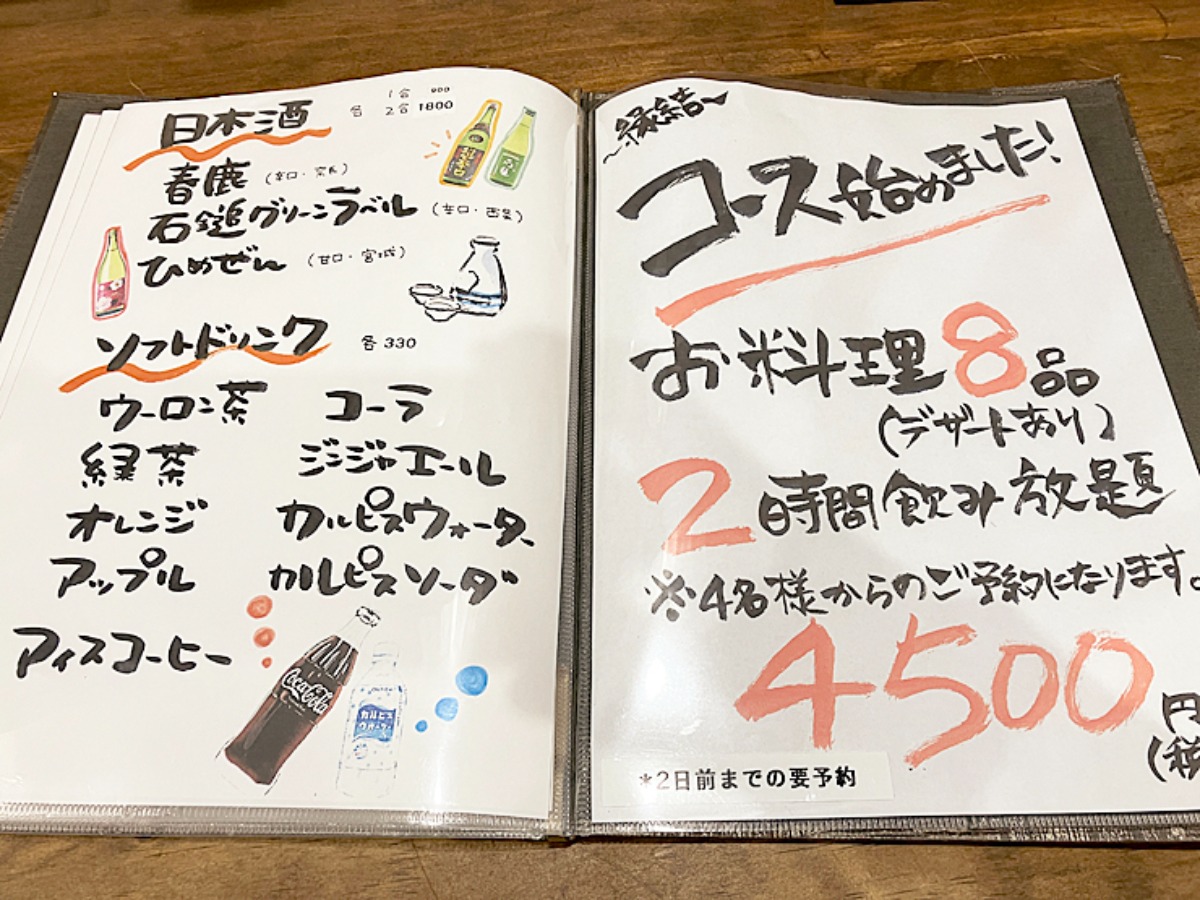 日本酒
各 1合 900
2合 1800
春鹿 (辛口・奈良)
石鎚グリーンラベル (辛口・西条)
ひめぜん (甘口・宮城)
ソフトドリンク 各330
ウーロン茶 コーラ
緑茶 ジンジャエール
オレンジ カルピスウォーター
アップル カルピスソーダ
アイスコーヒー
Coca-Cola
カルピス
ウォーター
〜縁結〜
コース始めました!
お料理8品
(デザートあり)
2時間飲み放題
※4名様からのご予約になります。
4500円
(税
*2日前までの要予約